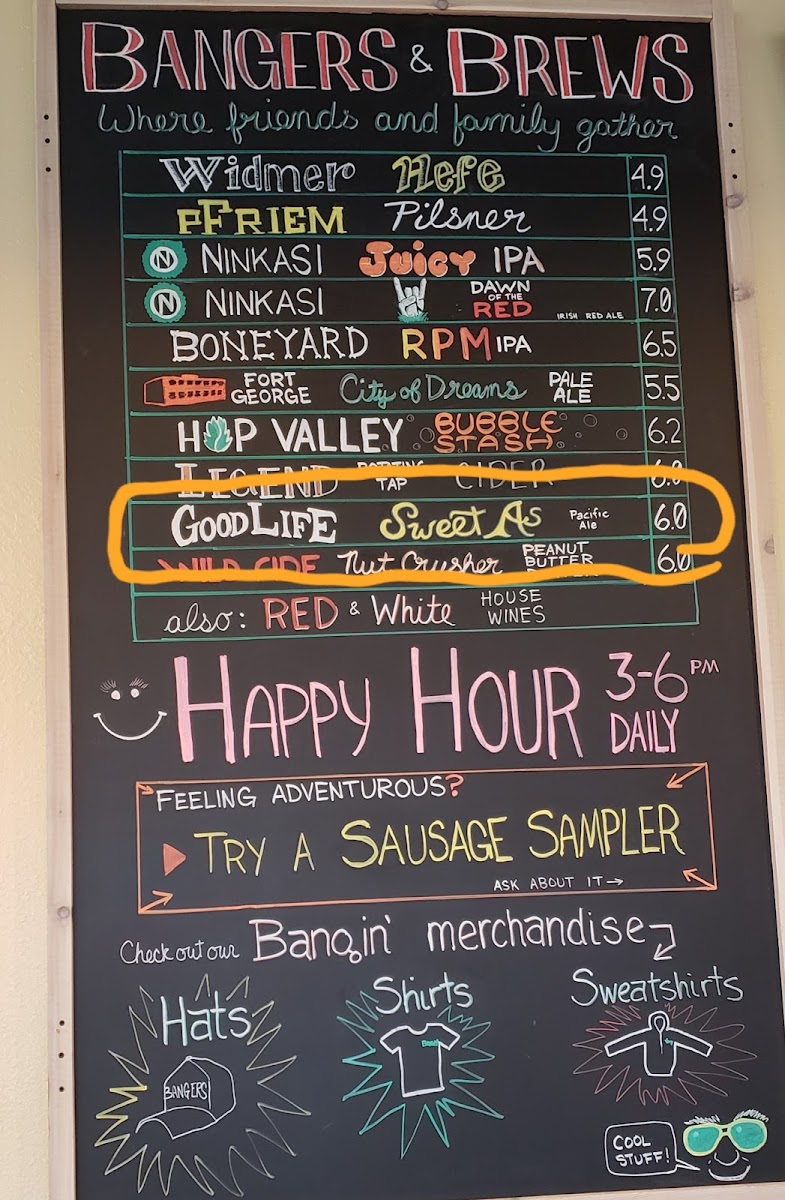 BANGERS & BREWS
Where friends and family gather
Widmer Hefe 4.9
PFRIEM Pilsner 4.9
N NINKASI Juicy IPA 5.9
N NINKASI DAWN OF THE RED IRISH RED ALE 7.0
BONEYARD RPM IPA 6.5
FORT GEORGE City of Dreams PALE ALE 5.5
HOP VALLEY BUBBLE STASH 6.2
LEGEND ROTATING TAP CIDER 6.0
GOODLIFE Sweet As Pacific Ale 6.0
WILD RIDE Nut Crusher PEANUT BUTTER 6.0
also: RED & White HOUSE WINES
HAPPY HOUR 3-6 PM DAILY
FEELING ADVENTUROUS?
TRY A SAUSAGE SAMPLER
ASK ABOUT IT
Check out our Bangin' merchandise
Hats Shirts Sweatshirts
BANGERS
COOL STUFF!